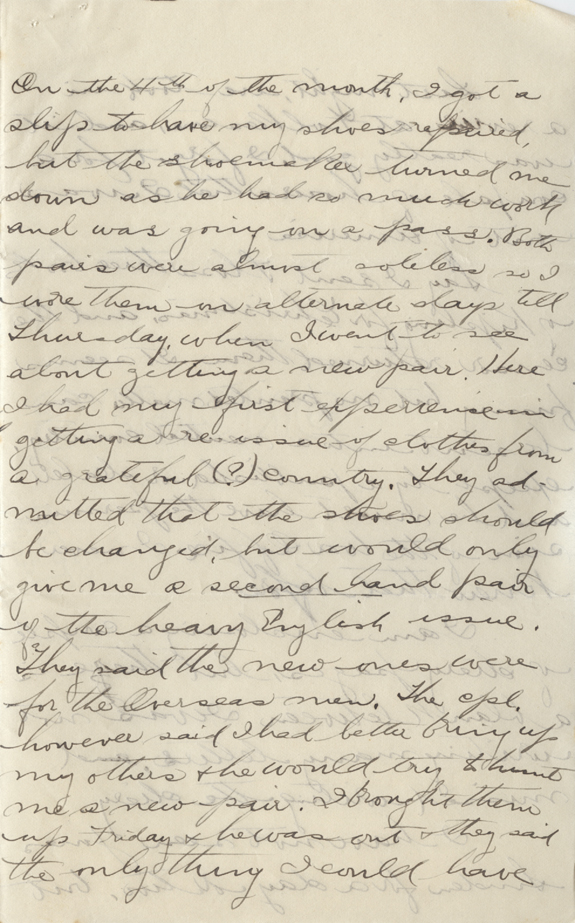 On the 4th of the month, I got a
slip to have my shoes repaired,
but the shoemaker turned me
down as he had so much work
and was going on a pass. Both
pairs were almost soleless so I
wore them on alternate days till
Thursday, when I went to see
about getting a new pair. Here
I had my first experience in
getting a re issue of clothes from
a grateful (?) country. They ad-
mitted that the shoes should
be changed, but would only
give me a second hand pair
of the heavy English issue.
They said the new ones were
for the Overseas men. The cpl.
however said I had better bring up
my others & he would try to hunt
me a new pair. I brought them
up Friday & he was out & they said
the only thing I could have